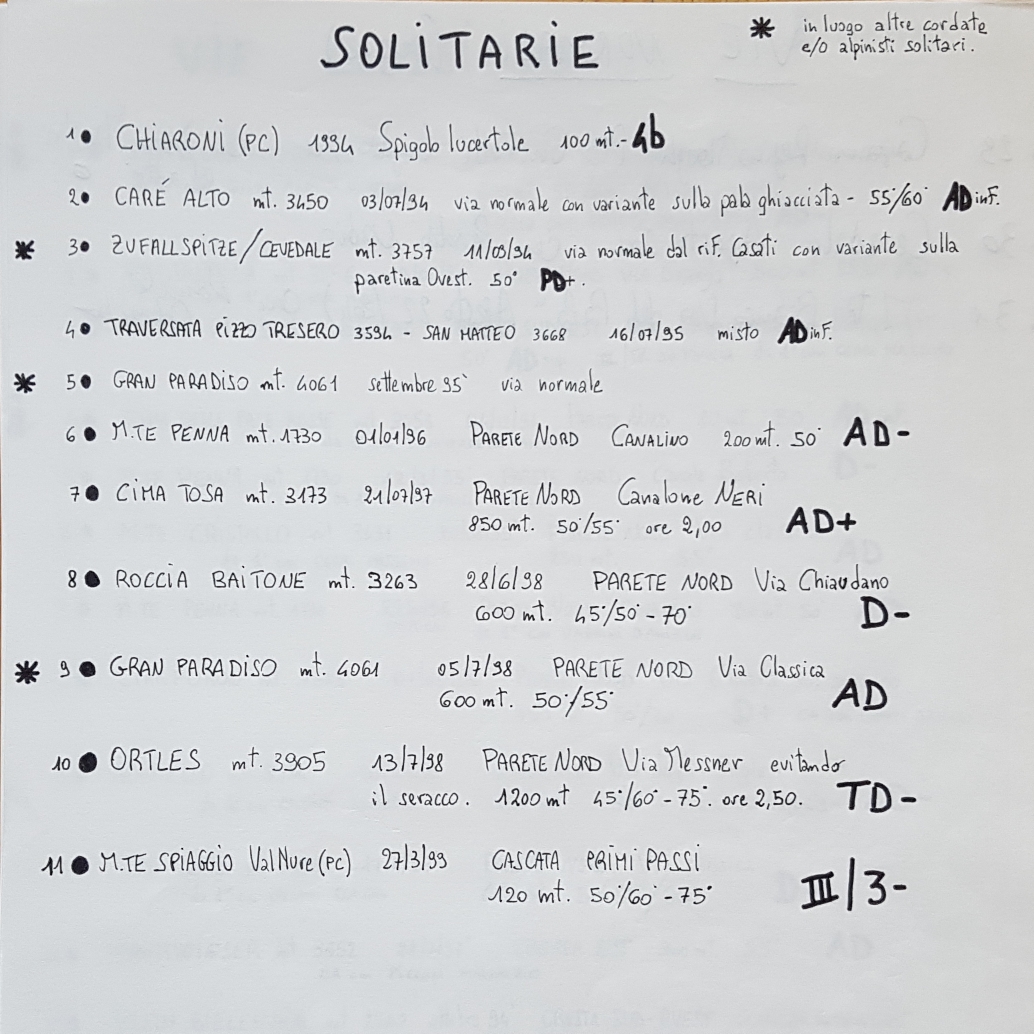 SOLITARIE
* in luogo altre cordate
e/o alpinisti solitari.
1● CHIARONI (PC) 1994 Spigolo lucertole 100 mt. - 4b
2● CARÉ ALTO mt. 3450 03/07/94 via normale con variante sulla pala ghiacciata - 55°/60° AD inf.
* 3● ZUFALLSPITZE/CEVEDALE mt. 3757 11/09/94 via normale dal rif. Casati con variante sulla
paretina Ovest. 50° PD+.
4● TRAVERSATA PIZZO TRESERO 3594 - SAN MATTEO 3668 16/07/95 misto AD inf.
* 5● GRAN PARADISO mt. 4061 settembre 95` via normale
6● M.TE PENNA mt. 1730 01/01/96 PARETE NORD CANALINO 200 mt. 50° AD-
7● CIMA TOSA mt. 3173 21/07/97 PARETE NORD Canalone NERI
850 mt. 50°/55° ore 2,00 AD+
8● ROCCIA BAITONE mt. 3263 28/6/98 PARETE NORD Via Chiaudano
600 mt. 45°/50° - 70° D-
* 9● GRAN PARADISO mt. 4061 05/7/98 PARETE NORD Via Classica
600 mt. 50°/55° AD
10● ORTLES mt. 3905 13/7/98 PARETE NORD Via Messner evitando
il seracco. 1200 mt 45°/60° - 75°. ore 2,50. TD-
11● M.TE SPIAGGIO Val Nure (PC) 27/3/99 CASCATA PRIMI PASSI
120 mt. 50°/60° - 75° III/3-